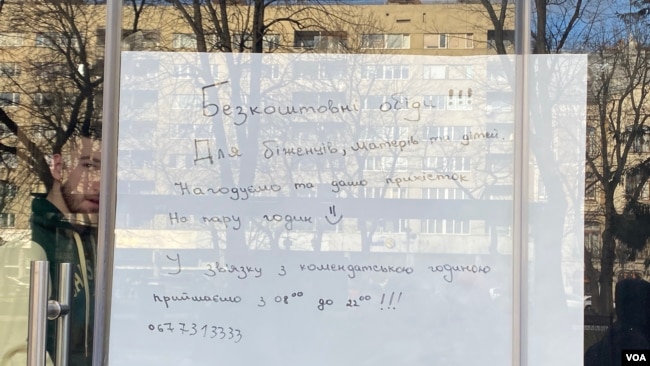 Безкоштовні обіди !!!
Для біженців, матерів та дітей.
Нагодуємо та дамо прихісток
На пару годин
У звязку з комендатською годиною
приймаємо з 08⁰⁰ до 22⁰⁰ !!!
0677313333
VOA